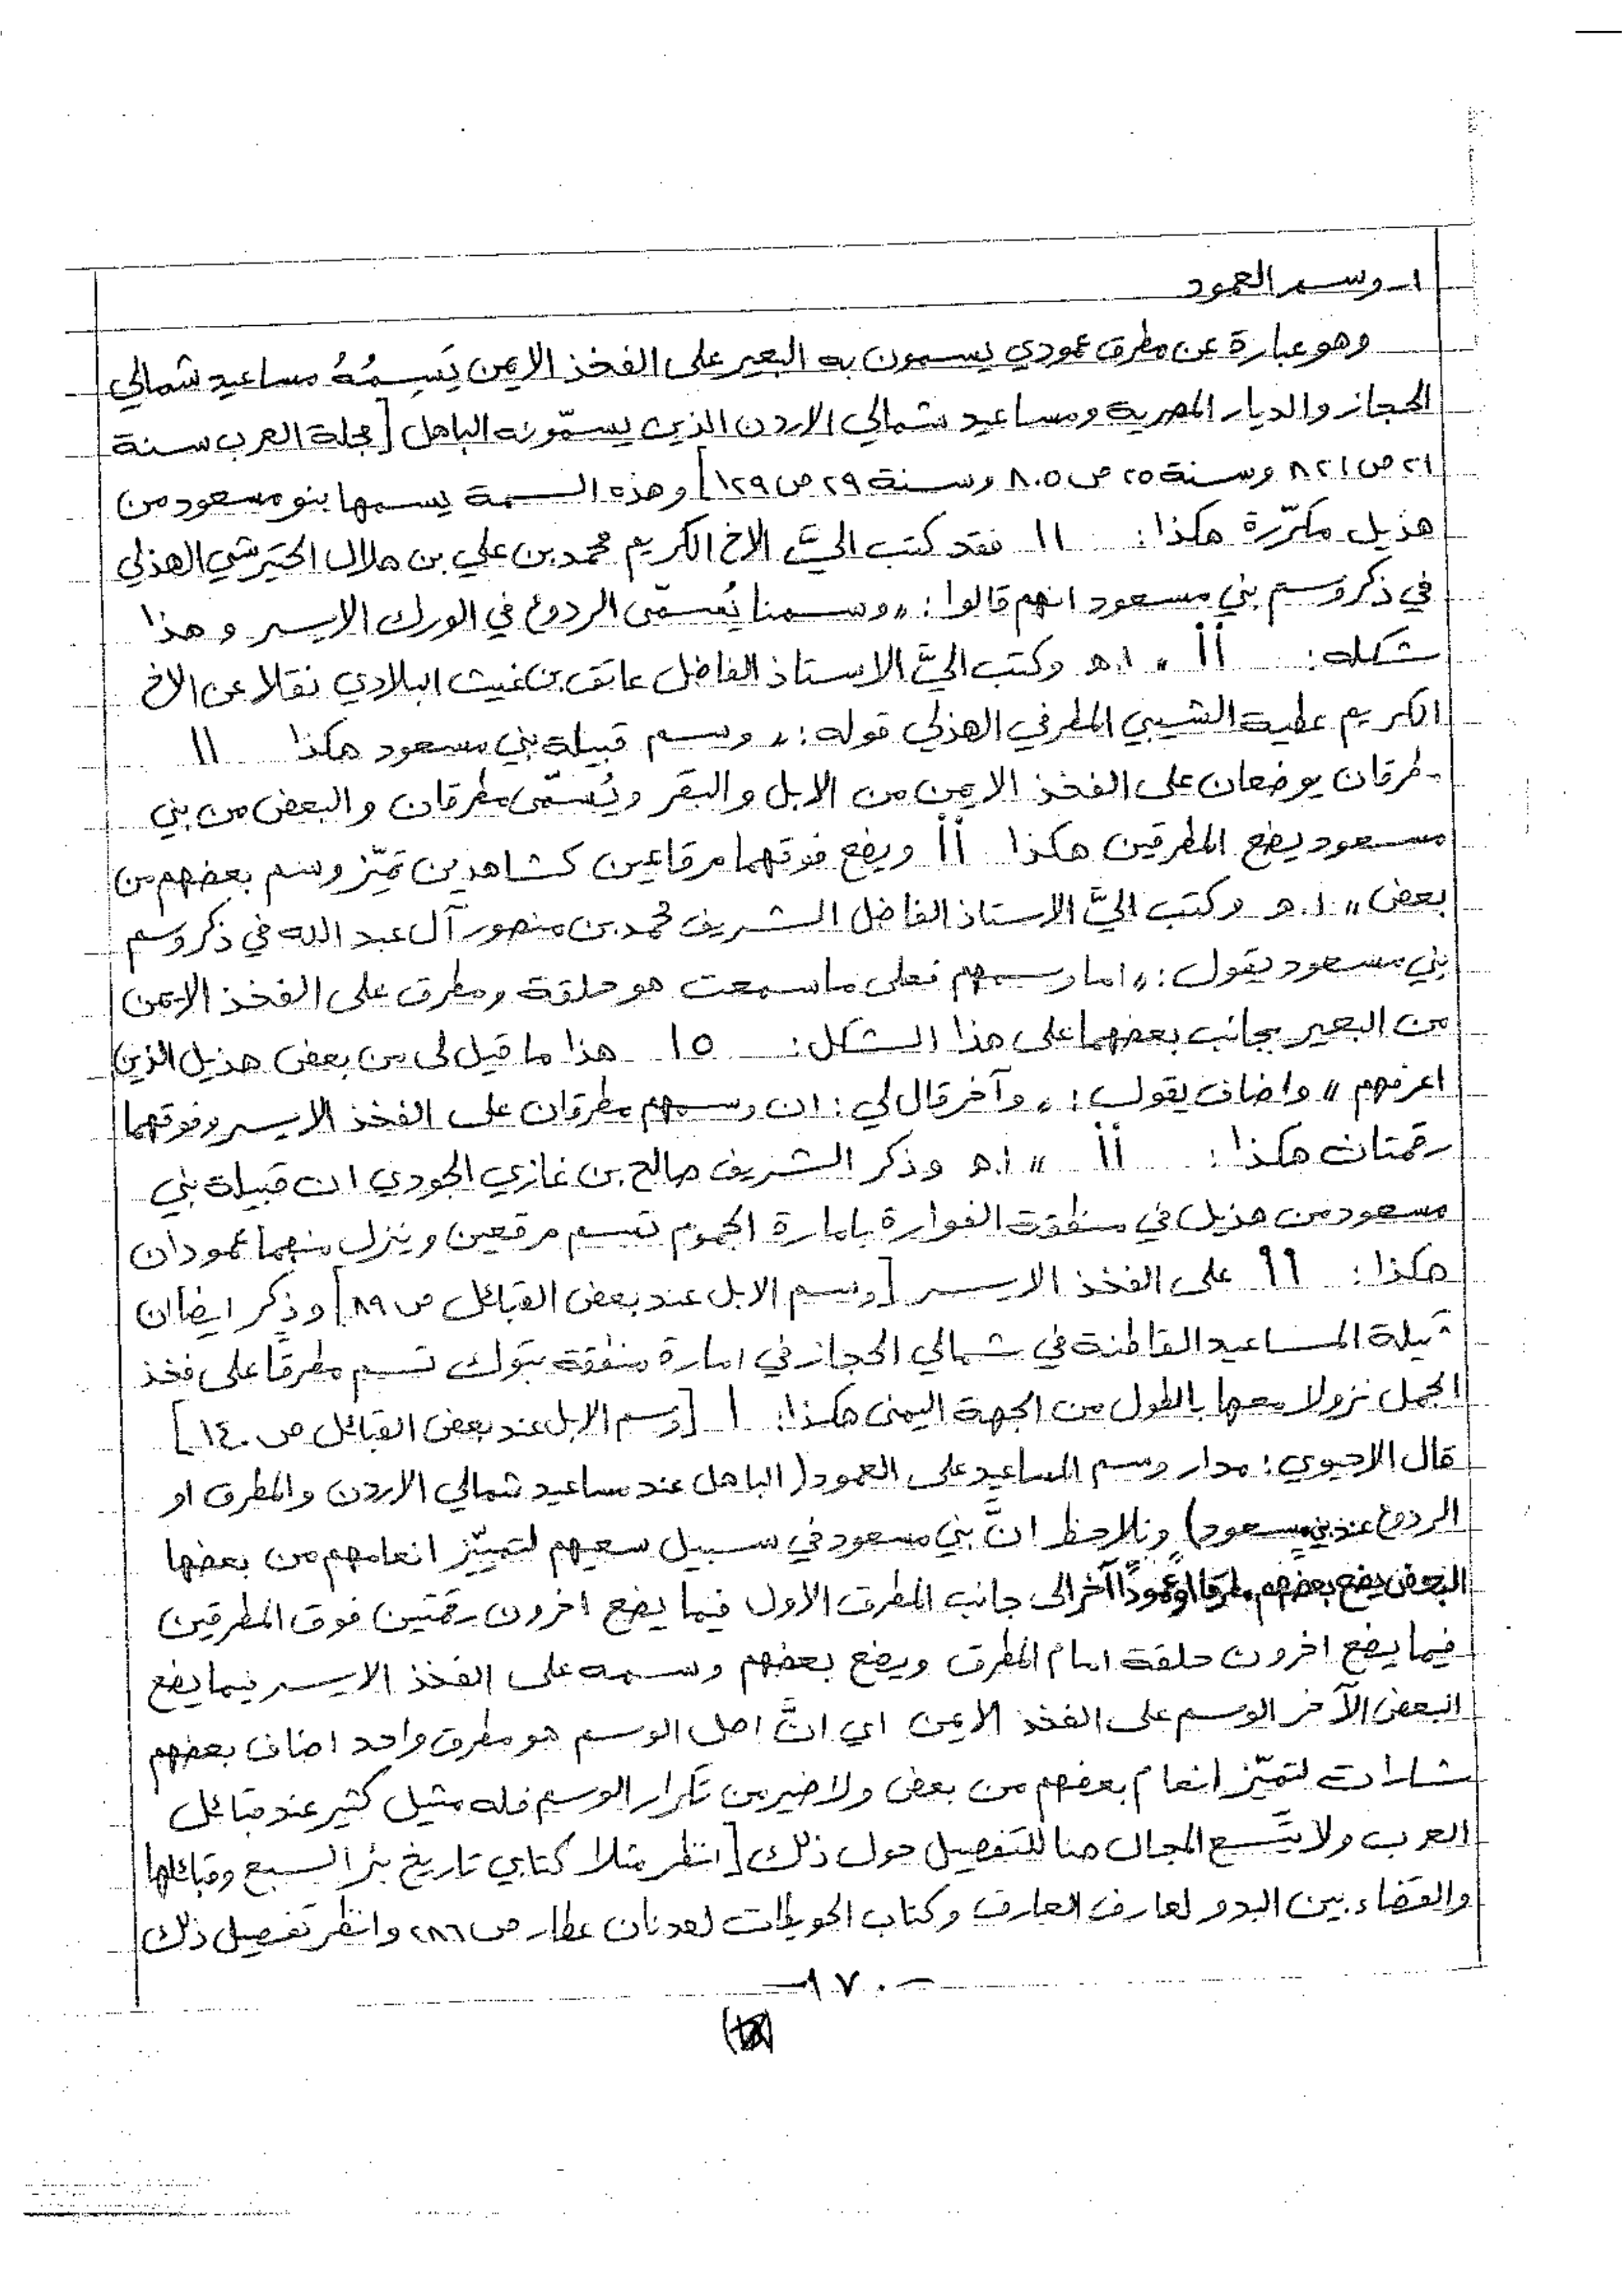 ١- وسم العمود
وهو عبارة عن مطرق عمودي يسمون به البعير على الفخذ الايمن يَسِمُهُ مساعيد شمالي
الحجاز والديار المصرية ومساعيد شمالي الاردن الذين يسمّونه الباهل [مجلة العرب سنة
٢١ ص ٨٢١ وسنة ٢٥ ص ٨٠٥ وسنة ٢٩ ص ١٢٩] وهذه السمة يسمها بنو مسعود من
هذيل مكرّرة هكذا: ١١ فقد كتب اليَّ الاخ الكريم محمد بن علي بن هلال الحتيرشي الهذلي
في ذكر وسم بني مسعود انهم قالوا: "وسمنا يُسمّى الردوع في الورك الايسر وهذا
شكله: أأ " ا.هـ وكتب اليَّ الاستاذ الفاضل عاتق بن غيث البلادي نقلا عن الاخ
الكريم عطية الشيبي المطرفي الهذلي قوله: "وسم قبيلة بني مسعود هكذا ١١
مطرقان يوضعان على الفخذ الايمن من الابل والبقر ويُسمّى مطرقان والبعض من بني
مسعود يضع المطرقين هكذا أأ ويضع فوقهما مرقاعين كشاهدين تميّز وسم بعضهم من
بعض" ا.هـ وكتب اليَّ الاستاذ الفاضل الشريف محمد بن منصور آل عبد الله في ذكر وسم
بني مسعود يقول: "اما وسمهم فعلى ما سمعت هو حلقة ومطرق على الفخذ الايمن
من البعير بجانب بعضهما على هذا الشكل: ١٥ هذا ما قيل لي من بعض هذيل الذين
اعرفهم" واضاف يقول: "وآخر قال لي: ان وسمهم مطرقان على الفخذ الايسر وفوقهما
رقمتان هكذا: أأ " ا.هـ وذكر الشريف صالح بن غازي الجودي ان قبيلة بني
مسعود من هذيل في منطقة الفوارة بامارة الجموم تسم مرقعين وينزل منهما عمودان
هكذا: ٩٩ على الفخذ الايسر [وسم الابل عند بعض القبائل ص ٨٩] وذكر ايضا ان
قبيلة المساعيد القاطنة في شمالي الحجاز في امارة منطقة تبوك تسم مطرقًا على فخذ
الجمل نزولا معها بالطول من الجهة اليمنى هكذا: ١ [وسم الابل عند بعض القبائل ص ١٤٠]
قال الاحيوي: مدار وسم المساعيد على العمود (الباهل عند مساعيد شمالي الاردن والمطرق او
الردوع عند بني مسعود) ونلاحظ انَّ بني مسعود في سبيل سعيهم لتمييّز انعامهم من بعضها
البعض يضع بعضهم مطرقا او عمودًا آخر الى جانب المطرق الاول فيما يضع اخرون رقمتين فوق المطرقين
فيما يضع اخرون حلقة امام المطرق ويضع بعضهم وسمه على الفخذ الايسر فيما يضع
البعض الآخر الوسم على الفخذ الايمن اي انَّ اصل الوسم هو مطرق واحد اضاف بعضهم
شارات لتميّز انعام بعضهم من بعض ولا ضير من تكرار الوسم فله مثيل كثير عند قبائل
العرب ولا يتَّسع المجال هنا للتفصيل حول ذلك [انظر مثلا كتابي تاريخ بئر السبع وقبائلها
والقضاء بين البدو لعارف العارف وكتاب الحويطات لعدنان عطار ص ٢٨٦ وانظر تفصيل ذلك
-١٧٠-